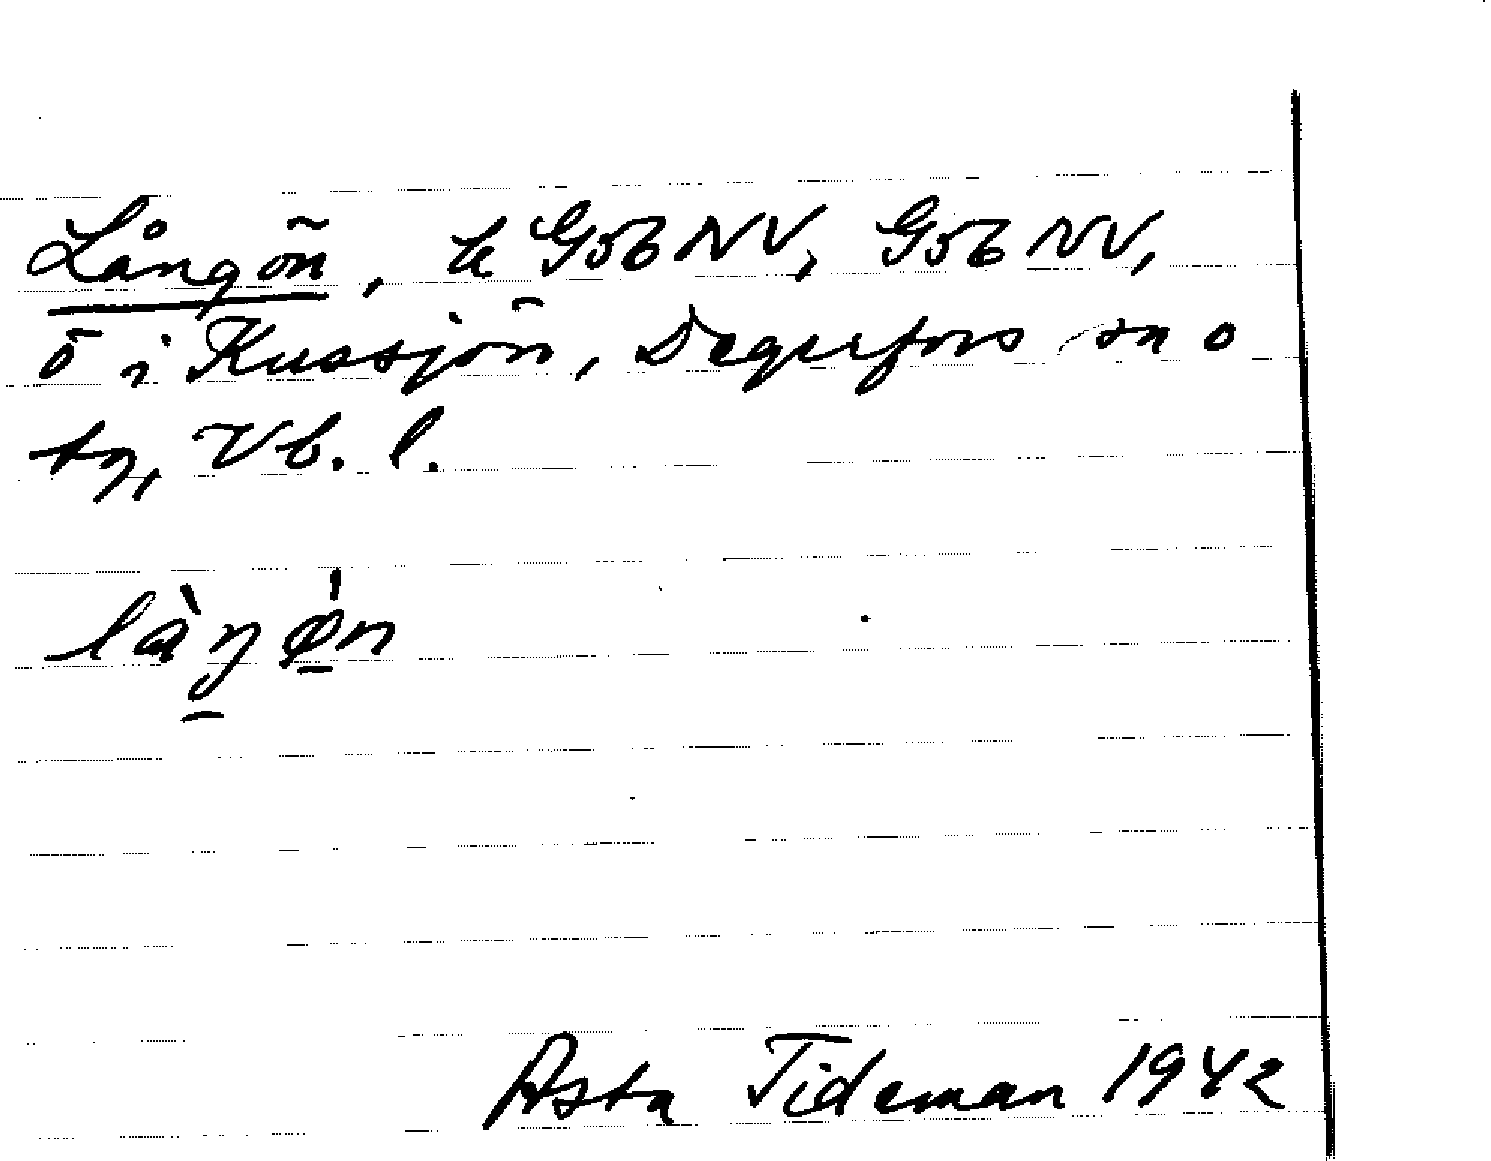 Långön, k G56NV, G56NV,
ö i Kussjön, Degerfors sn o
tg, Vb. l.
låŋø̀n
Asta Tideman 1942